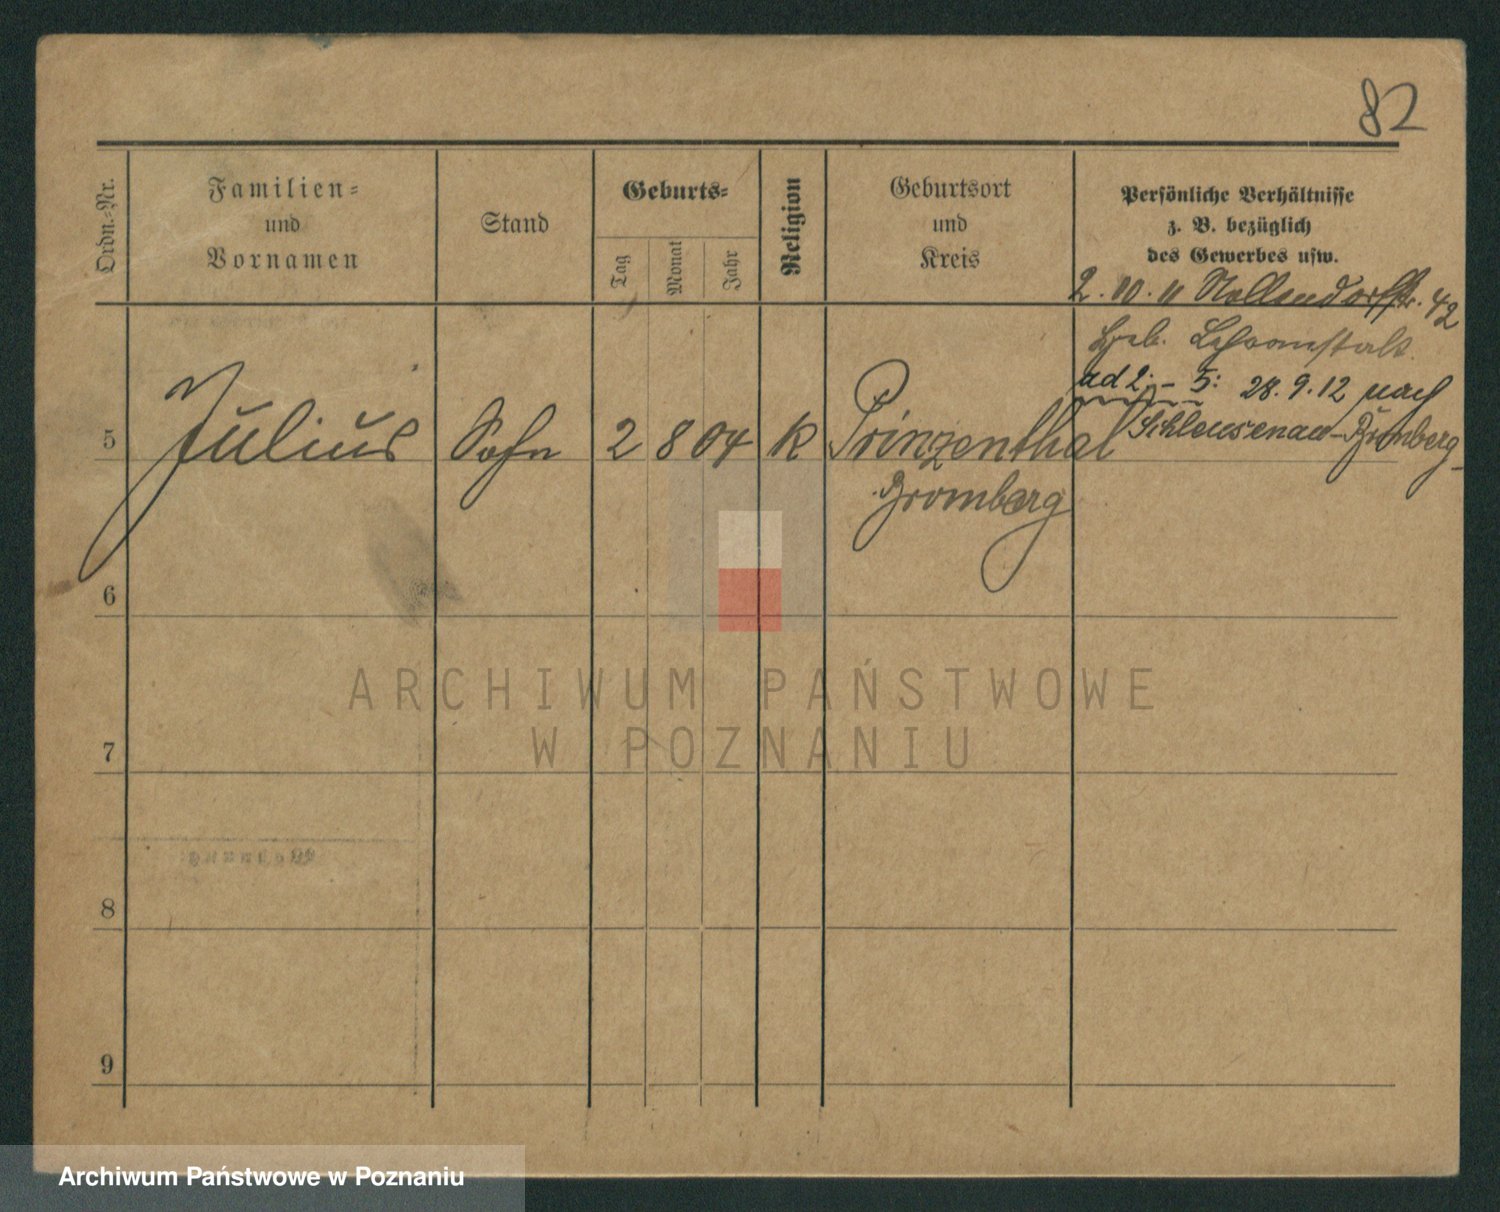 82
Ordn.-Nr.
Familien-
und
Vornamen
Stand
Geburts-
Tag
Monat
Jahr
Religion
Geburtsort
und
Kreis
Persönliche Verhältnisse
z. B. bezüglich
des Gewerbes usw.
2.10.11 Nollendorfstr. 42
Heb. Lehranstalt.
ad 2: - 5: 28.9.12 nach
Schleusenau-Bromberg
5 Julius Sohn 2 8 04 K Prinzenthal
Bromberg
6
7
8
9
ARCHIWUM PAŃSTWOWE
W POZNANIU
Archiwum Państwowe w Poznaniu